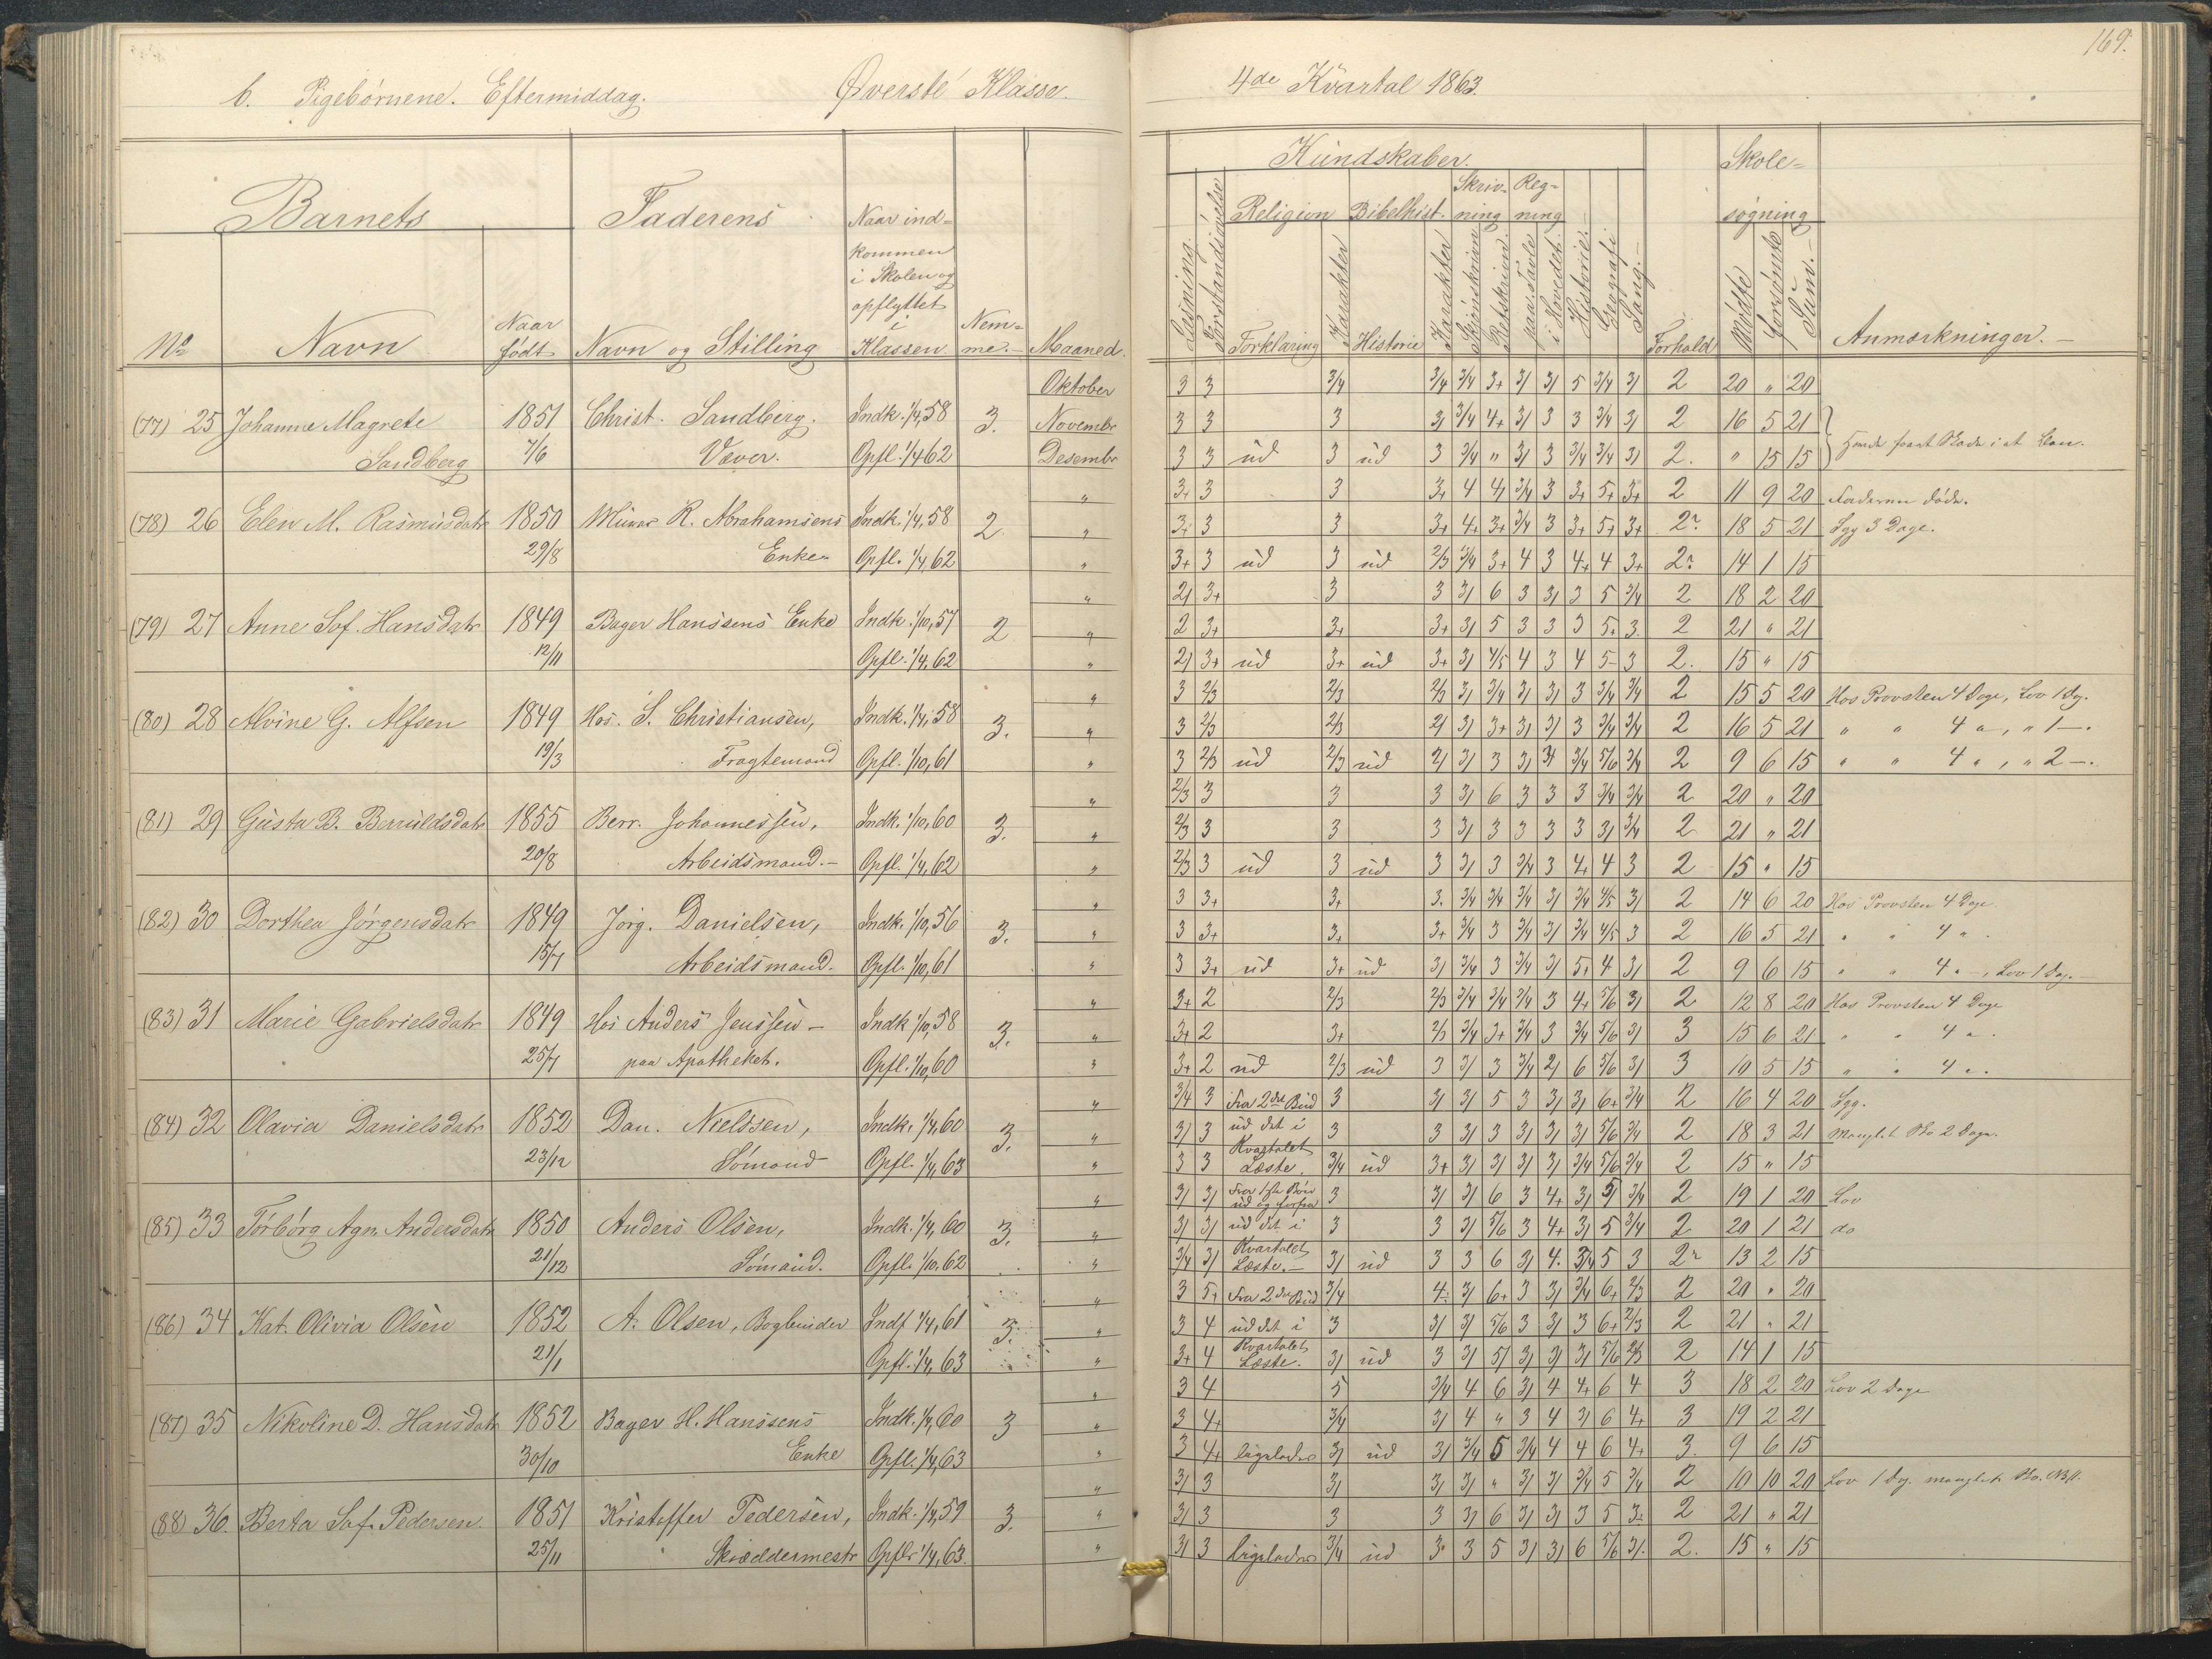 6. Pigebørnene. Eftermiddag. Øverste Klasse.
4de Kvartal 1863.
169.
Barnets
Faderens
Naar ind-
kommen
i Skolen og
opflyttet
i
Klassen
No
Navn
Naar
født
Navn og Stilling
Nem-
me.
Maaned.
Kundskaber.
Skole-
søgning
Religion Bibelhist. Skriv-
ning Reg-
ning
Læsning.
Forstandsøvelse
Forklaring
Karakter
Historie
Karakter
Skjönskrivn
Retskrivn.
paa Tavle
i Hovedet.
Historie.
Geografi
Sang.
Forhold
Mødte
forsømte
Sum.
Anmærkninger.
Oktober 3 3 3/4 3/4 3/4 3+ 3/ 3/ 5 3/4 3/ 2 20 „ 20
(77) 25 Johanne Magrete 1851 Christ. Sandberg. Indk. 1/4,58 3. Novembr 3 3 3 3/ 3/4 4+ 3/ 3 3 3/4 3/ 2 16 5 21
Sandberg 7/6 Væver. Opfl. 1/4 62 Desembr 3 3 ud 3 ud 3 3/4 „ 3/ 3 3/4 3/4 3/ 2. „ 15 15
„ 3+ 3 3 3+ 4 4/ 3/4 3 3+ 5+ 3+ 2 11 9 20 Faderen døde.
(78) 26 Elen M. Rasmusdatr 1850 Murer R. Abrahamsens Indk. 1/4,58 2. „ 3+ 3 3 3+ 4+ 3+ 3/4 3 3+ 5+ 3+ 2? 18 5 21 Syg 3 Dage.
29/8 Enke Opfl. 1/4,62 „ 3+ 3 ud 3 ud 2/3 3/4 3+ 4 3 4+ 4 3+ 2? 14 1 15
„ 2/ 3+ 3 3 3/ 6 3 3/ 3 5 3/4 2 18 2 20
(79) 27 Anne Sof. Hansdatr 1849 Bager Hanssens Enke Indk. 1/10,57 2 „ 2 3+ 3+ 3+ 3/ 5 3 3 3 5+ 3. 2 21 „ 21
12/11 Opfl. 1/4,62 „ 2/ 3+ ud 3+ ud 3+ 3/ 4/5 4 3 4 5- 3 2. 15 „ 15
„ 3 2/3 2/3 2/3 3/ 3/4 3/ 3/ 3 3/4 3/4 2 15 5 20 Hos Provsten 4 Dage, Lov 1 Dg.
(80) 28 Alvine G. Alfsen 1849 Hos. S. Christiansen, Indk. 1/4,58 3. „ 3 2/3 2/3 2/ 3/ 3+ 3/ 3/ 3 3/4 3/4 2 16 5 21 „ „ 4 „, „ 1 –.
19/3 Fragtemand Opfl. 1/10,61 „ 3 2/3 ud 2/3 ud 2/ 3/ 3 3/ 3/ 3/4 5/6 3/4 2 9 6 15 „ „ 4 „, „ 2 –.
„ 2/3 3 3 3 3/ 6 3 3 3 3/4 3/4 2 20 „ 20
(81) 29 Gusta B. Berruldsdatr 1855 Berr. Johannessen, Indk. 1/10,60 3. „ 2/3 3 3 3 3/ 3 3 3 3 3/ 3/4 2 21 „ 21
20/8 Arbeidsmand. Opfl. 1/4,62 „ 2/3 3 ud 3 ud 3 3/ 3 3/4 3 4+ 4 3 2 15 „ 15
„ 3 3+ 3+ 3. 3/4 3/4 3/4 3/ 3/4 4/5 3/ 2 14 6 20 Hos Provsten 4 Dage.
(82) 30 Dorthea Jörgensdatr 1849 Jörg. Danielsen, Indk. 1/10,56 3. „ 3 3+ 3+ 3+ 3/4 3 3/4 3/ 3/4 4/5 3 2 16 5 21 „ „ 4 „.
15/7 Arbeidsmand. Opfl. 1/10,61 „ 3 3+ ud 3+ ud 3/ 3/4 3 3/4 3/ 5+ 4 3/ 2 9 6 15 „ „ 4 „ –, Lov 1 Dg.
„ 3+ 2 2/3 2/3 3/4 3/4 3/4 3 4+ 5/6 3/ 2 12 8 20 Hos Provsten 4 Dage
(83) 31 Marie Gabrielsdatr 1849 Hos Anders Jenssen – Indk 1/10,58 3. „ 3+ 2 3+ 2/3 3/4 3+ 3/4 3 3/4 5/6 3/ 3 15 6 21 „ „ 4 „.
25/7 paa Apotheket. Opfl. 1/10,60 „ 3+ 2 ud 2/3 ud 3 3/ 3 3/4 2/ 6 5/6 3/ 3 10 5 15 „ „ 4 „.
„ 3/4 3 Fra 2det Bud 3 3/ 3/ 5 3 3/ 3/ 6+ 3/4 2 16 4 20 Syg.
(84) 32 Olavia Danielsdatr 1852 Dan. Nielssen, Indk. 1/4,60 3. „ 3/ 3 ud det i 3 3 3/ 3 3/ 3/ 3/ 5/6 3/4 2 18 3 21 Manglet Sko 2 Dage.
23/12 Sömand Opfl. 1/4,63 „ 3 3 Kvartalet Læste. 3/4 ud 3+ 3/ 3/ 3/ 3/ 3/4 5/6 3/4 2 15 „ 15
„ 3/ 3/ Fra 1ste Bön ud og forfra 3 3/ 3/ 6 3 4+ 3/ 5/ 3/4 2 19 1 20 Lov
(85) 33 Torborg Agn. Andersdatr 1850 Anders Olsen, Indk. 1/4,60 3. „ 3/ 3/ ud det i 3 3 3/ 5/6 3 4+ 3/ 5 3/4 2 20 1 21 do
21/12 Sömand. Opfl. 1/10,62 „ 3/4 3/ Kvartalet Læste. 3/ ud 3 3 6 3/ 4. 3/4 5 3 2? 13 2 15
„ 3 5+ Fra 2det Bud 3/4 4: 3/ 6+ 3 3/ 3/4 6+ 2/3 2 20 „ 20
(86) 34 Kat. Olivia Olsen 1852 A. Olsen, Bogbinder Indk 1/4,61 3. „ 3 4 ud det i 3 3/ 3/ 5/6 3 3/ 3 6+ 2/3 2 21 „ 21
21/1 Opfl. 1/4,63 „ 3+ 4 Kvartalet Læste. 3/ ud 3 3/ 5/ 3/ 3/ 3/ 5/6 2/3 2 14 1 15
„ 3 4 5 3/4 4 6 3/ 4 4+ 6 4 3 18 2 20 Lov 2 Dage
(87) 35 Nikoline D. Hansdatr 1852 Bager H. Hanssens Indk. 1/4,60 3 „ 3 4+ 3/4 3/ 4 „ 3 4 3/ 6 4+ 3 19 2 21
30/10 Enke Opfl. 1/4,63 „ 3 4+ ligeledes 3/ ud 3/ 3/4 5 3/4 4 4 6 4+ 3. 9 6 15
„ 3/ 3 3/ 3/ 3/ „ 3/ 3/ 3/4 5 3/4 2 10 10 20 Lov 1 Dg. manglet Sko
(88) 36. Berta Sof. Pedersen. 1851 Kristoffer Pedersen, Indk. 1/4,59 3. „ 3/ 3 3 3 3/ 6 3/ 3/ 3 5 3+ 2 21 „ 21
25/11 Skræddermestr Opfl. 1/4,63. „ 3/ 3 ligeledes 3/4 ud 3 3 5 3/ 3/ 6 5/6 3/. 2. 15 „ 15